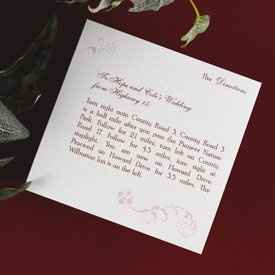 The Directions
To Hope and Cole's Wedding
from Highway 15:
Turn right onto County Road 3. County Road 3
is a half mile after you pass the Pioneer Nature
Park. Follow for 2½ miles, turn left on County
Road 17. Follow for 4.5 miles, turn right at
stoplight. You are now on Howard Drive.
Proceed on Howard Drive for 3.5 miles. The
Williamton Inn is on the left.